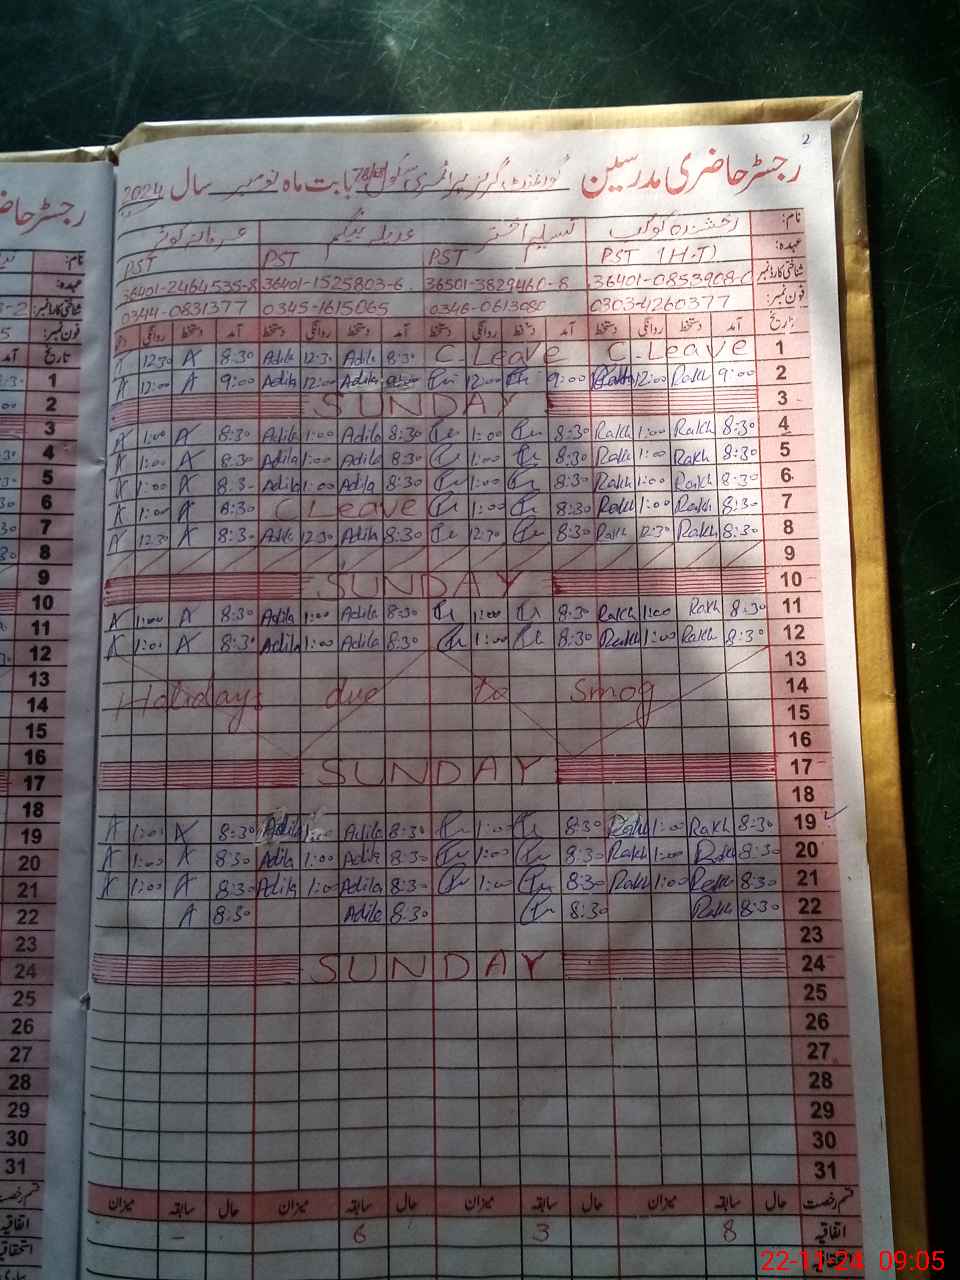 2
رجسٹر حاضری مدرسین گورنمنٹ گرلز پرائمری سکول بابت ماہ نومبر سال 2024
نام: رخشندہ کوکب تسلیم اختر عدیلہ بیگم
عہدہ: PST (H.T) PST PST PST
شناختی کارڈ نمبر 36401-0853908-0 36501-3829460-8 36401-1525803-6 36401-2464535-8
فون نمبر: 0303-4260377 0346-0613080 0345-1615065 0344-0831377
تاریخ آمد دستخط روانگی دستخط آمد دستخط روانگی دستخط آمد دستخط روانگی دستخط آمد دستخط روانگی
12:30 A 8:30 Adila 12:30 Adila 8:30 C.Leave C.Leave 1
A 12:00 A 9:00 Adila 12:00 Adila 9:00 12:00 9:00 Rakh 12:00 Rakh 9:00 2
SUNDAY 3
A 1:00 A 8:30 Adila 1:00 Adila 8:30 1:00 8:30 Rakh 1:00 Rakh 8:30 4
A 1:00 A 8:30 Adila 1:00 Adila 8:30 1:00 8:30 Rakh 1:00 Rakh 8:30 5
A 1:00 A 8:30 Adila 1:00 Adila 8:30 1:00 8:30 Rakh 1:00 Rakh 8:30 6
A 1:00 A 8:30 C.Leave 1:00 8:30 Rakh 1:00 Rakh 8:30 7
A 12:30 A 8:30 Adila 12:30 Adila 8:30 12:30 8:30 Rakh 12:30 Rakh 8:30 8
9
SUNDAY 10
A 1:00 A 8:30 Adila 1:00 Adila 8:30 1:00 8:30 Rakh 1:00 Rakh 8:30 11
A 1:00 A 8:30 Adila 1:00 Adila 8:30 1:00 8:30 Rakh 1:00 Rakh 8:30 12
13
Holidays due to Smog 14
15
16
SUNDAY 17
18
A 1:00 A 8:30 Adila 1:00 Adila 8:30 1:00 8:30 Rakh 1:00 Rakh 8:30 19
A 1:00 A 8:30 Adila 1:00 Adila 8:30 1:00 8:30 Rakh 1:00 Rakh 8:30 20
A 1:00 A 8:30 Adila 1:00 Adila 8:30 1:00 8:30 Rakh 1:00 Rakh 8:30 21
A 8:30 Adila 8:30 8:30 Rakh 8:30 22
23
SUNDAY 24
25
26
27
28
29
30
31
قسم رخصت حال سابقہ میزان حال سابقہ میزان حال سابقہ میزان حال سابقہ میزان
اتفاقیہ 8 3 6 -
رجسٹر حا
نام:
عہدہ:
شناختی کارڈ نمبر
فون نمبر:
تاریخ آمد
1
2
3
4
5
6
7
8
9
10
11
12
13
14
15
16
17
18
19
20
21
22
23
24
25
26
27
28
29
30
31
قسم رخصت
اتفاقیہ
استحقاقیہ
22-11-24 09:05